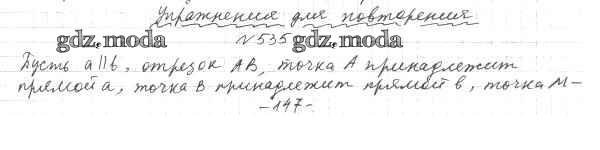 Упражнения для повторения
gdz.moda №535 gdz.moda
Пусть a||b, отрезок AB, точка A принадлежит
прямой a, точка B принадлежит прямой b, точка M-
-147-